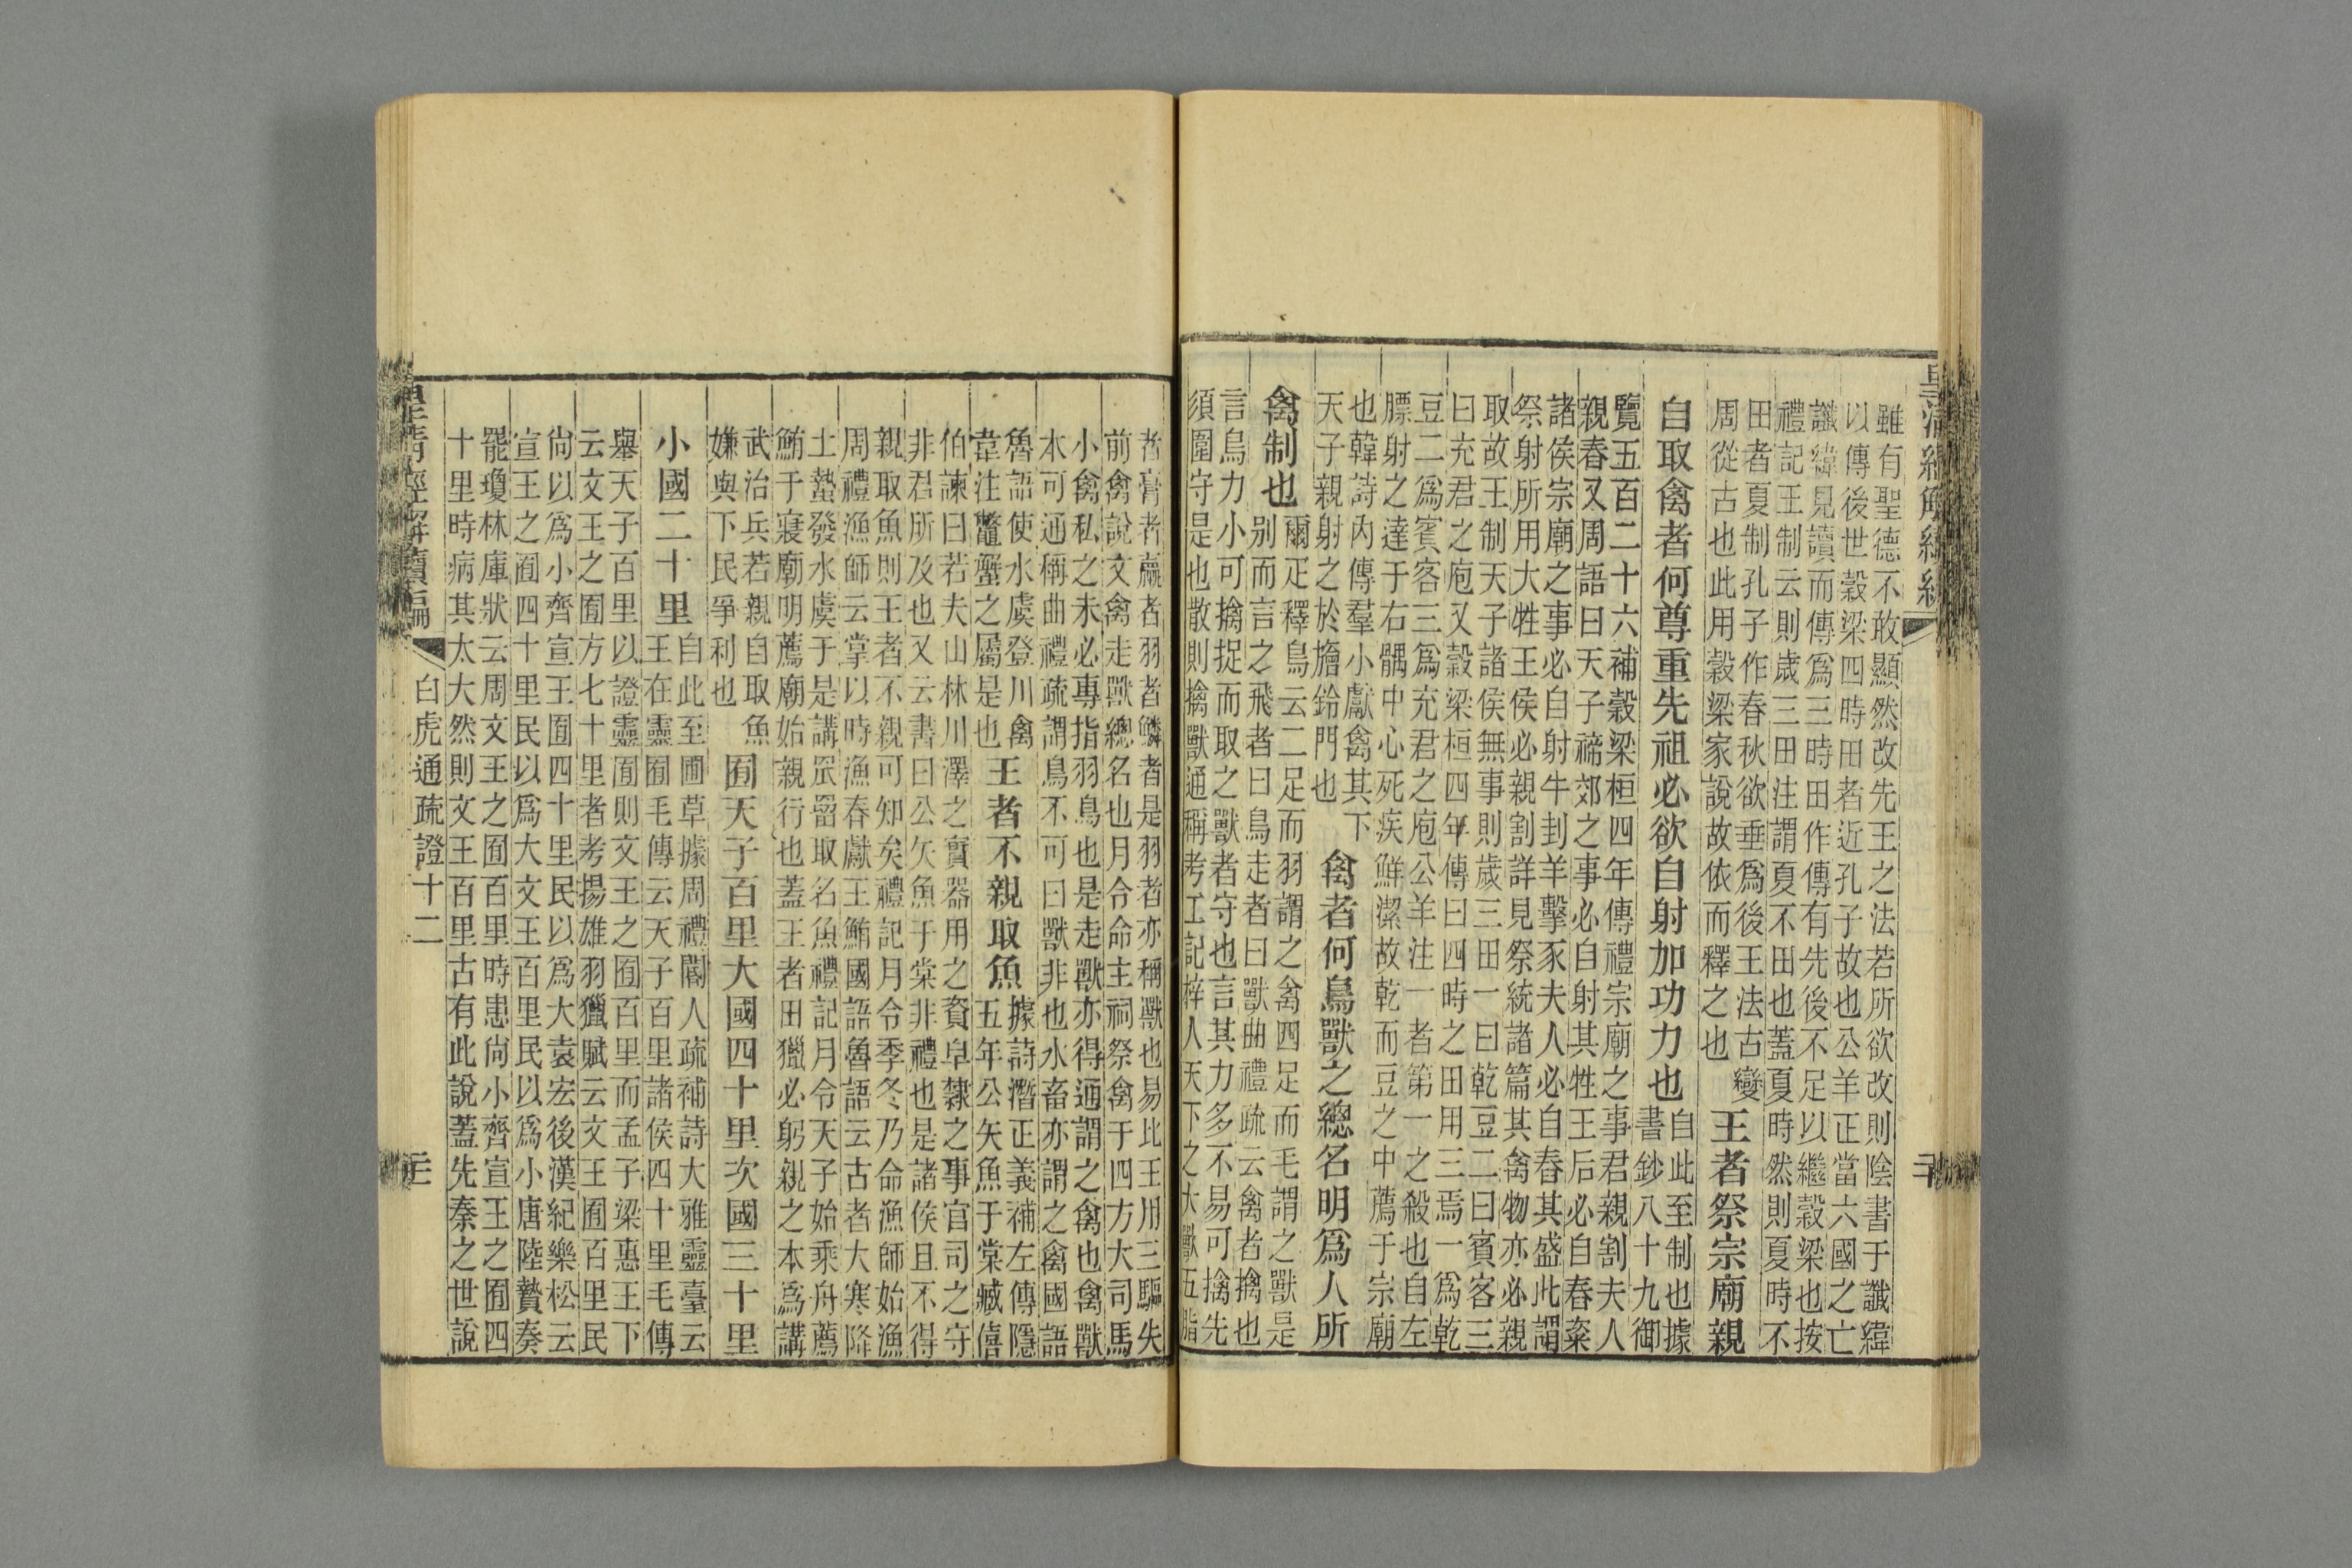 皇清經解續編
雖有聖德不敢顯然改先王之法若所欲改則陰書于讖緯
以傳後世穀梁四時田者近孔子故也公羊正當六國之亡
讖緯見讀而傳爲三時田作傳有先後不足以繼穀梁也按
禮記王制云則歲三田注謂夏不田也蓋夏時然則夏時不
田者夏制孔子作春秋欲垂爲後王法古變
周從古也此用穀梁家說故依而釋之也
王者祭宗廟親
自取禽者何尊重先祖必欲自射加功力也
自此至制也據
書鈔八十九御
覽五百二十六補穀梁桓四年傳禮宗廟之事君親割夫人
親舂又周語曰天子禘郊之事必自射其牲王后必自舂粢
諸侯宗廟之事必自射牛刲羊擊豕夫人必自舂其盛此謂
祭射所用大牲王侯必親割詳見祭統諸篇其禽物亦必親
取故王制天子諸侯無事則歲三田一曰乾豆二曰賓客三
曰充君之庖又穀梁桓四年傳曰四時之田用三焉一爲乾
豆二爲賓客三爲充君之庖公羊注一者第一之殺也自左
膘射之達于右髃中心死疾鮮潔故乾而豆之中薦于宗廟
也韓詩內傳羣小獻禽其下
天子親射之於鈴門也
禽者何鳥獸之總名明爲人所
禽制也
爾疋釋鳥云二足而羽謂之禽四足而毛謂之獸是
别而言之飛者曰鳥走者曰獸曲禮疏云禽者擒也
言鳥力小可擒捉而取之獸者守也言其力多不易可擒先
須圍守是也散則擒獸通稱考工記梓人天下之大獸五脂
者膏者臝者羽者鱗者是羽者亦稱獸也易比王用三驅失
前禽說文禽走獸總名也月令命主祠祭禽于四方大司馬
小禽私之未必專指羽鳥也是走獸亦得通謂之禽也禽獸
本可通稱曲禮疏謂鳥不可曰獸非也水畜亦謂之禽國語
魯語使水虞登川禽
韋注鼈蜃之屬是也
王者不親取魚
據詩潛正義補左傳隱
五年公矢魚于棠臧僖
伯諫曰若夫山林川澤之實器用之資皁隸之事官司之守
非君所及也又云書曰公矢魚于棠非禮也是諸侯且不得
親取魚則王者不親可知矣禮記月令季冬乃命漁師始漁
周禮漁師云掌以時漁春獻王鮪國語魯語云古者大寒降
土蟄發水虞于是講罛罶取名魚禮記月令天子始乘舟薦
鮪于寢廟明薦廟始親行也蓋王者田獵必躬親之本爲講
武治兵若親自取魚
嫌與下民爭利也
囿天子百里大國四十里次國三十里
小國二十里
自此至囿草據周禮閽人疏補詩大雅靈臺云
王在靈囿毛傳云天子百里諸侯四十里毛傳
舉天子百里以證靈囿則文王之囿百里而孟子梁惠王下
云文王之囿方七十里者考揚雄羽獵賦云文王囿百里民
尙以爲小齊宣王囿四十里民以爲大袁宏後漢紀樂松云
宣王之囿四十里民以爲大文王百里民以爲小唐陸贄奏
罷瓊林庫狀云周文王之囿百里時患尙小齊宣王之囿四
十里時病其太大然則文王百里古有此說蓋先秦之世說
皇清經解續編
白虎通疏證十二